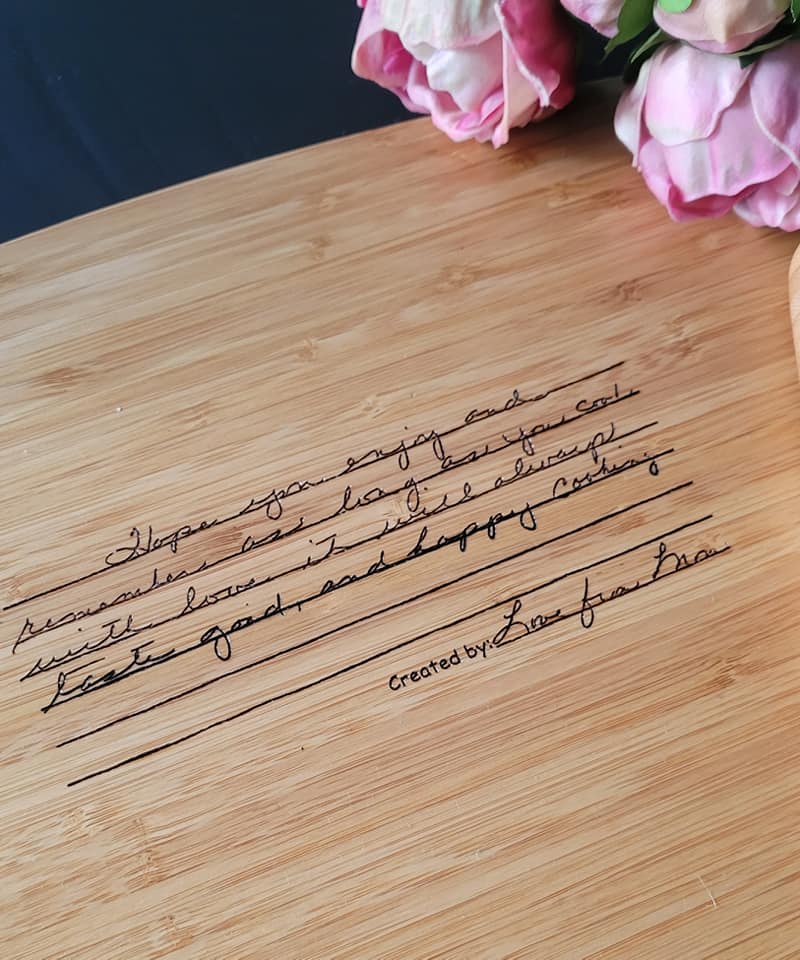 Hope you enjoy and
remember as long as you cook
with love it will always
taste good, and happy cooking
Created by: Love from